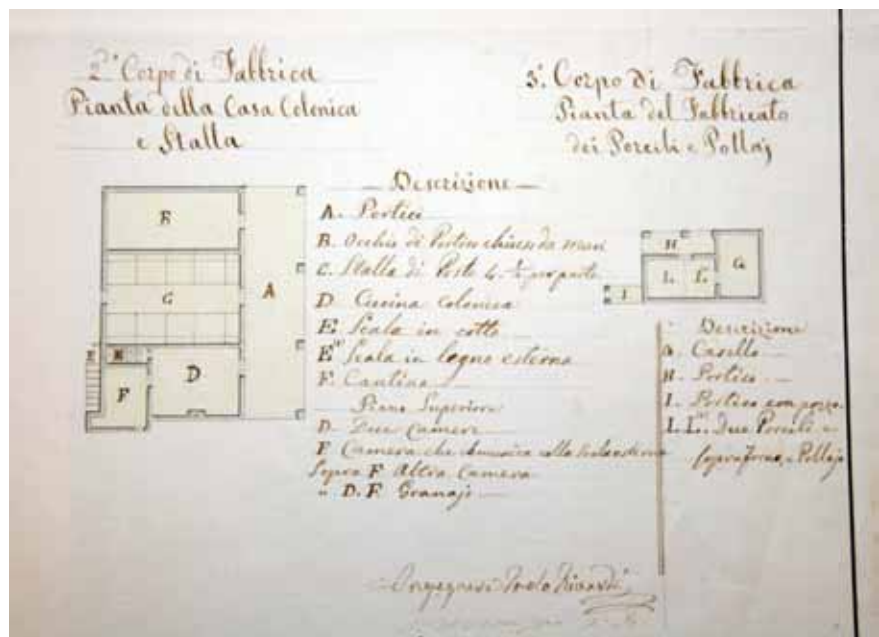 2° Corpo di Fabbrica
Pianta della Casa Colonica
e Stalla
3°. Corpo di Fabbrica
Pianta del Fabbricato
dei Porcili e Pollaj
B
C
A
E
E
D
F
Descrizione
A. Portici
B. Occhio di Portico chiuso da muri
C. Stalla di Poste 4. per parte
D. Cucina Colonica
E. Scala in cotto
E" Scala in legno esterna
F. Cantina
Piano Superiore
D. Due Camere
F Camera che colla Scala esterna
Sopra F Altra Camera
" D. F Granajo
H
L
L
G
I
Descrizione
G. Casello
H. Portico
I. Portico con pozzo
L. L". Due Porcili e
sopra forno, e Pollajo
Ingegnere